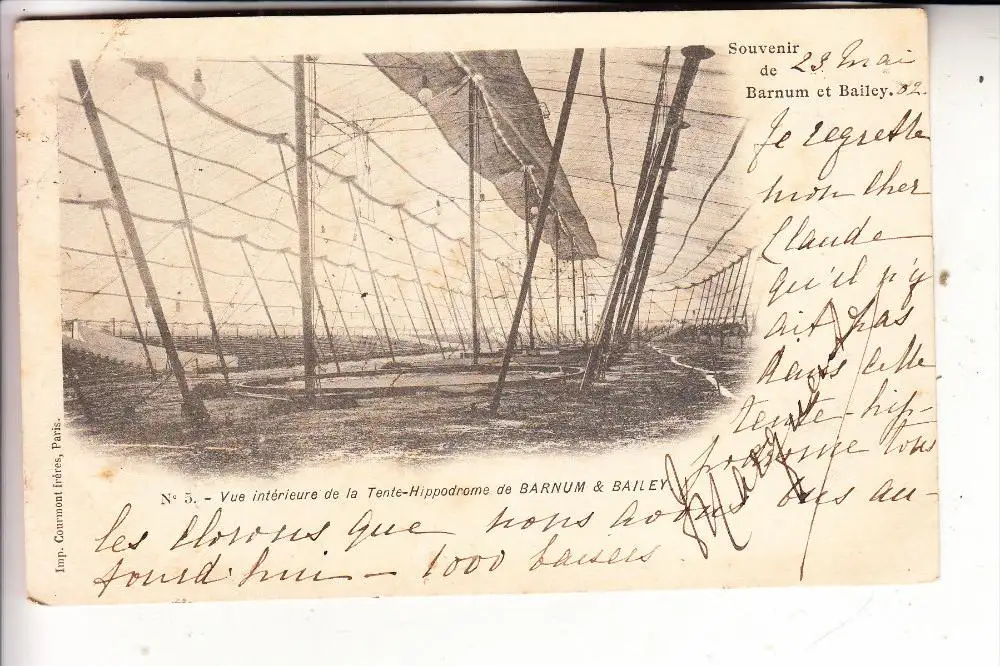 Souvenir
de
Barnum et Bailey.
23 Mai
02.
Je regrette
mon cher
Claude
qu'il n'y
ait pas
dans cette
tente-hip-
podrome tous
les clowns que nous avons vus au-
jourd'hui — 1000 baisers.
N° 5. - Vue intérieure de la Tente-Hippodrome de BARNUM & BAILEY
Imp. Courmont frères, Paris.